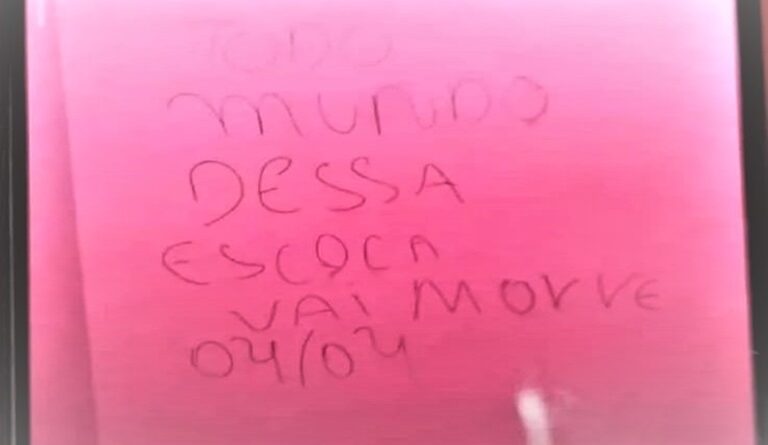 TODO
MUNDO
DESSA
ESCOCA
VAI MORRE
04/04